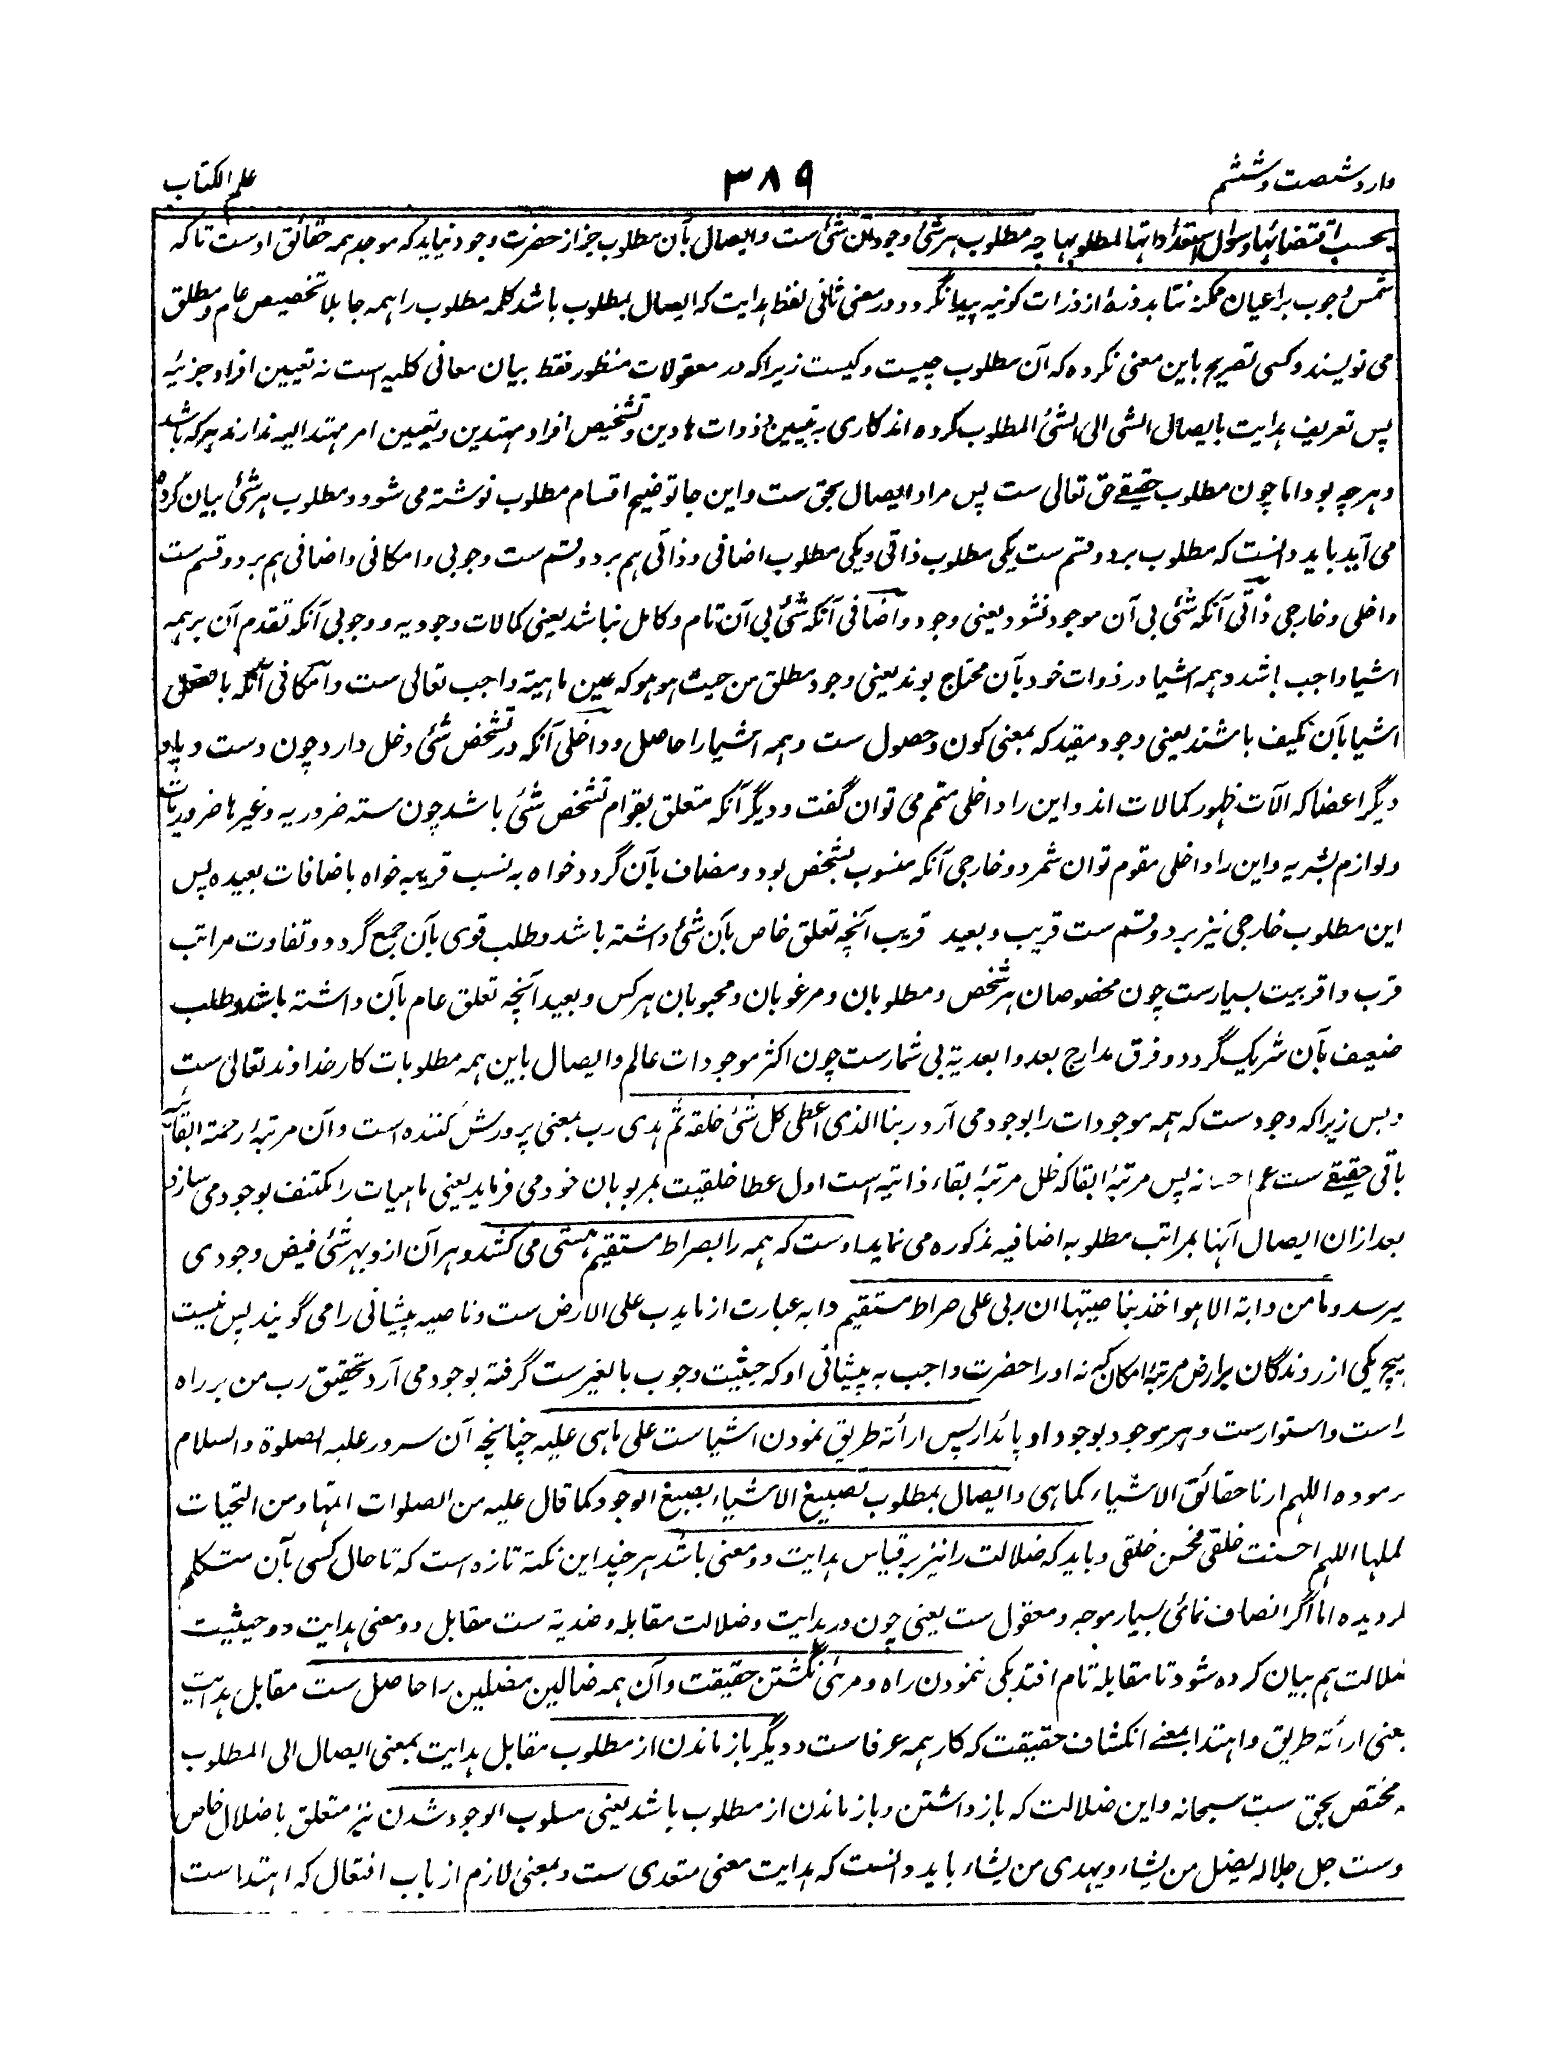 وارد شصت و ششم
۳۸۹
علم الکتاب
بحسب اقتضائها و سوال استعداداتها لمطلوبها چه مطلوب هر شئ وجود آن شئ ست و ایصال بآن مطلوب جز از حضرت وجود نیاید که موجد همه حقائق اوست تا که
شمس وجوب بر اعیان ممکنه نتابد ذرهٔ از ذرات کونیه پیدا نگردد و در معنی ثانی لفظ هدایت که ایصال بمطلوب باشد کلمه مطلوب را همه جا بلا تخصیص عام و مطلق
می نویسند و کسی تصریح باین معنی نکرده که آن مطلوب چیست و کیست زیرا که در معقولات منظور فقط بیان معانی کلیه است نه تعیین افراد جزئیه
پس تعریف هدایت بایصال الشی الی الشئ المطلوب کرده اند کاری به تبیین ذوات هادین و تشخیص افراد مهتدین و تعیین امر مهتد الیه ندارند هر که باشد
و هر چه بود اما چون مطلوب حقیقے حق تعالی ست پس مراد ایصال بحق ست و این جا توضیح اقسام مطلوب نوشته می شود و مطلوب هر شئ بیان کرده
می آید باید دانست که مطلوب بر دو قسم ست یکی مطلوب ذاتی و یکی مطلوب اضافی و ذاتی هم بر دو قسم ست وجوبی و امکانی و اضافی هم بر دو قسم ست
داخلی و خارجی ذاتی آنکه شئ بی آن موجود نشود یعنی وجود و اضافی آنکه شئ بی آن تام و کامل نباشد یعنی کمالات وجودیه و وجوبی آنکه تقدم آن بر همه
اشیا واجب باشد و همه اشیا در ذوات خود بآن محتاج بوند یعنی وجود مطلق من حیث هو هو که عین ماهیة واجب تعالی ست و امکانی آنکه با تعلق
اشیا بآن مکیف باشند یعنی وجود مقید که بمعنی کون و حصول ست و همه اشیا را حاصل و داخلی آنکه در تشخص شئ دخل دارد چون دست و پا و
دیگر اعضا که آلات ظهور کمالات اند و این را داخلی متمم می توان گفت و دیگر آنکه متعلق بقوام تشخص شئ باشد چون سته ضروریه و غیرها ضروریات
و لوازم بشریه و این را داخلی مقوم توان شمرد و خارجی آنکه منسوب بشخص بود و مضاف بآن گردد خواه به نسب قریبه خواه باضافات بعیده پس
این مطلوب خارجی نیز بر دو قسم ست قریب و بعید قریب آنچه تعلق خاص بآن شئ داشته باشد و طلب قوی بآن جمع گردد و تفاوت مراتب
قرب و اقربیت بسیارست چون مخصوصان هر شخص و مطلوبان و مرغوبان و محبوبان هر کس و بعید آنچه تعلق عام بآن داشته باشد و طلب
ضعیف بآن شریک گردد و فرق مدارج بعد و ابعدیة بی شمارست چون اکثر موجودات عالم و ایصال باین همه مطلوبات کار خداوند تعالی ست
و بس زیرا که وجود ست که همه موجودات را بوجود می آرد ربنا الذی اعطی کل شئ خلقه ثم هدی رب بمعنی پرورش کننده است و آن مرتبهٔ رحمة ابقائیه
باقی حقیقے ست پس مرتبهٔ ابقا که ظل مرتبهٔ بقاء ذاتیه است اول عطا خلقیت بمربوبان خود می فرماید یعنی ماهیات را مکتنف بوجود می سازد
بعد ازان ایصال آنها بمراتب مطلوبه اضافیه مذکوره می نماید اوست که همه را بصراط مستقیم هستی می کشد و هر آن ازو بهر شئ فیض وجودی
میرسد و ما من دابة الا هو اخذ بناصیتها ان ربی علی صراط مستقیم دابه عبارت از ما یدب علی الارض ست و ناصیه پیشانی را می گویند پس نیست
هیچ یکی از روندگان بر ارض مرتبهٔ امکان که نه او را حضرت واجب به پیشانی او که حیثیت وجوب بالغیر ست گرفته بوجود می آرد تحقیق رب من بر راه
راست و استوارست و هر موجود بوجود او پائدار پس ارائه طریق نمودن اشیا ست علی ما هی علیه چنانچه آن سرور علیه الصلوة والسلام
رموده اللهم ارنا حقائق الاشیاء کما هی و ایصال بمطلوب تصبیغ الاشیاء بصبغ الوجود کما قال علیه من الصلوات اتمها و من التحیات
کملها اللهم احسنت خلقی فحسن خلقی و باید که ضلالت را نیز بر قیاس هدایت دو معنی باشد هر چند این نکته تازه است که تا حال کسی بآن متکلم
گردیده اما اگر انصاف نمائی بسیار موجه و معقول ست یعنی چون در هدایت و ضلالت مقابله و ضدیة ست مقابل دو معنی هدایت دو حیثیت
ضلالت هم بیان کرده شود تا مقابله تام افتد یکی ننمودن راه و مرئی نگشتن حقیقت و آن همه ضالین مضلین را حاصل ست مقابل هدایت
بمعنی ارائه طریق و اهتدا بمعنے انکشاف حقیقت که کار همه عرفاست و دیگر باز ماندن از مطلوب مقابل هدایت بمعنی ایصال الی المطلوب
که مختص بحق ست سبحانه و این ضلالت که باز داشتن و باز ماندن از مطلوب باشد یعنی مسلوب الوجود شدن نیز متعلق باضلال خاص
وست جل جلاله یضل من یشاء و یهدی من یشاء باید دانست که هدایت معنی متعدی ست و بمعنی لازم از باب افتعال که اهتداست